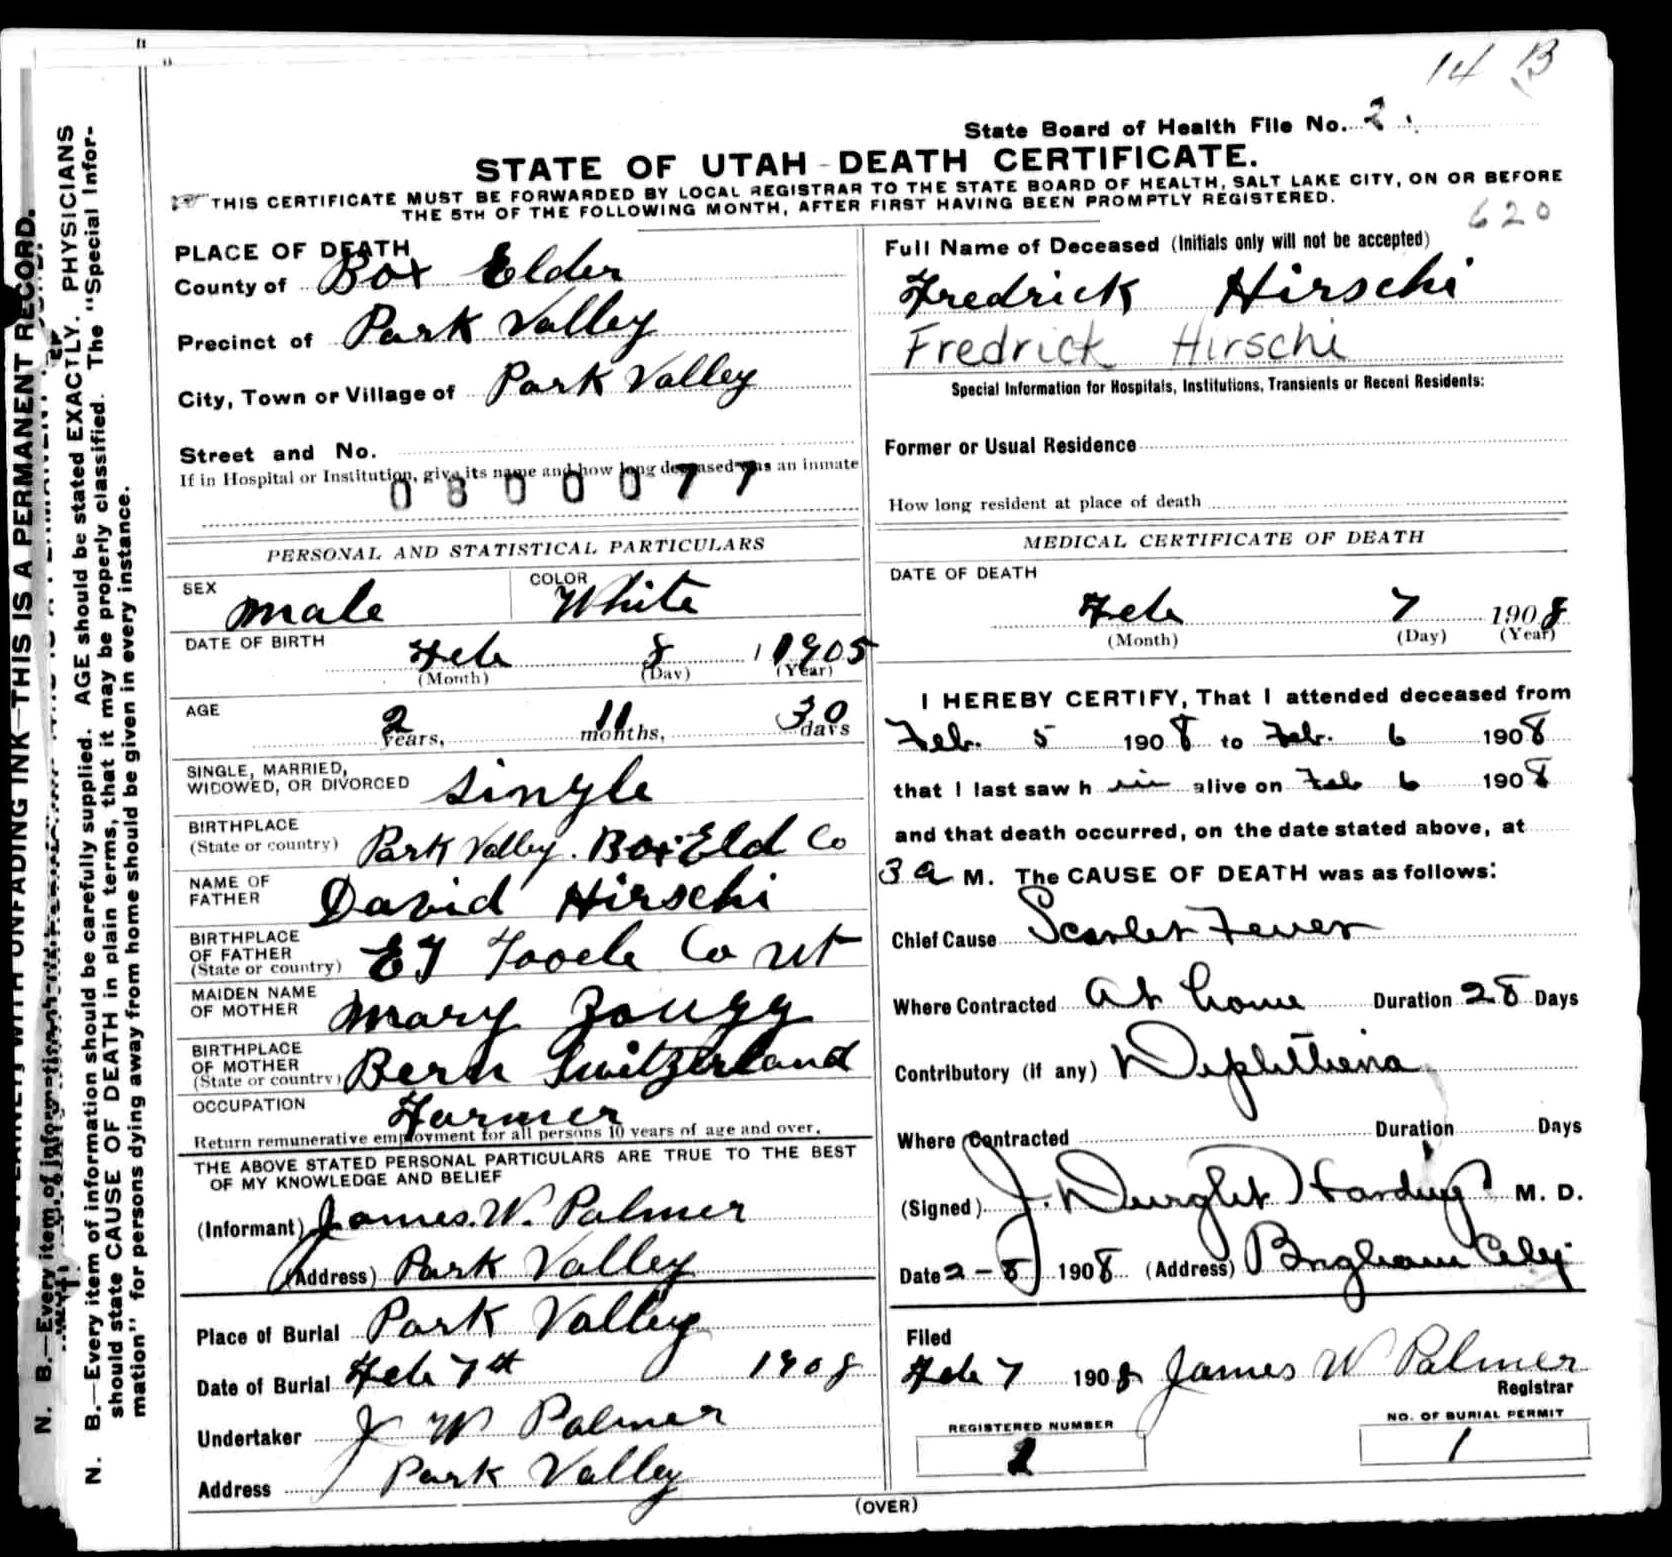 14 B
State Board of Health File No. 2
STATE OF UTAH - DEATH CERTIFICATE.
THIS CERTIFICATE MUST BE FORWARDED BY LOCAL REGISTRAR TO THE STATE BOARD OF HEALTH, SALT LAKE CITY, ON OR BEFORE
THE 5TH OF THE FOLLOWING MONTH, AFTER FIRST HAVING BEEN PROMPTLY REGISTERED.
620
PLACE OF DEATH
County of Box Elder
Precinct of Park Valley
City, Town or Village of Park Valley
Street and No.
If in Hospital or Institution, give its name and how long deceased was an inmate
0800077
PERSONAL AND STATISTICAL PARTICULARS
SEX male COLOR White
DATE OF BIRTH Feb 8 1905
(Month) (Day) (Year)
AGE 2 years, 11 months, 30 days
SINGLE, MARRIED,
WIDOWED, OR DIVORCED single
BIRTHPLACE
(State or country) Park Valley. Box Eld Co
NAME OF
FATHER David Hirschi
BIRTHPLACE
OF FATHER
(State or country) ET Tooele Co Ut
MAIDEN NAME
OF MOTHER Mary Zougg
BIRTHPLACE
OF MOTHER
(State or country) Bern Switzerland
OCCUPATION Farmer
Return remunerative employment for all persons 10 years of age and over.
THE ABOVE STATED PERSONAL PARTICULARS ARE TRUE TO THE BEST
OF MY KNOWLEDGE AND BELIEF
(Informant) James. W. Palmer
(Address) Park Valley
Place of Burial Park Valley
Date of Burial Feb 7th 1908
Undertaker J W Palmer
Address Park Valley
Full Name of Deceased (Initials only will not be accepted)
Fredrick Hirschi
Fredrick Hirschi
Special Information for Hospitals, Institutions, Transients or Recent Residents:
Former or Usual Residence
How long resident at place of death
MEDICAL CERTIFICATE OF DEATH
DATE OF DEATH
Feb 7 1908
(Month) (Day) (Year)
I HEREBY CERTIFY, That I attended deceased from
Feb. 5 1908 to Feb. 6 1908
that I last saw h im alive on Feb 6 1908
and that death occurred, on the date stated above, at
3 a M. The CAUSE OF DEATH was as follows:
Chief Cause Scarlet Fever
Where Contracted At home Duration 28 Days
Contributory (if any) Diphtheria
Where Contracted Duration Days
(Signed) J. Harding M. D.
Date 2-8 1908 (Address) Brigham City
Filed
Feb 7 1908 James W Palmer
Registrar
REGISTERED NUMBER
2
NO. OF BURIAL PERMIT
1
(OVER)
N. B.—Every item of information should be carefully supplied. AGE should be stated EXACTLY. PHYSICIANS
should state CAUSE OF DEATH in plain terms, that it may be properly classified. The "Special Infor-
mation" for persons dying away from home should be given in every instance.
WITH UNFADING INK—THIS IS A PERMANENT RECORD.
N. B.—Every item of